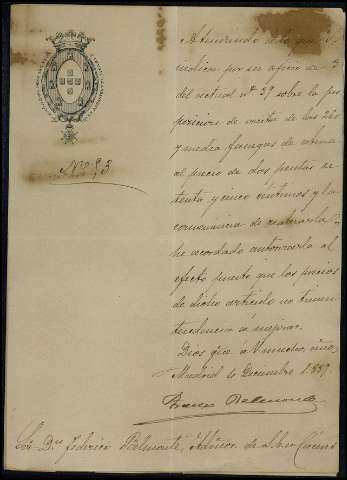 Nº 53
Atendiendo a lo que
indica por su oficio de 3
del actual nº 39 sobre la pro
posicion de venta de las 250
y media fanegas de
al precio de dos pesetas se
tenta y cinco céntimos y la
conveniencia de
he acordado autorizarle al
efecto puesto que los precios
de dicho artículo no tienen
tendencia á mejorar.
Dios gue. á V. muchos años.
Madrid 6 Diciembre 1889
Belmonte
Sr. Dn. Federico Belmonte, Admor. de